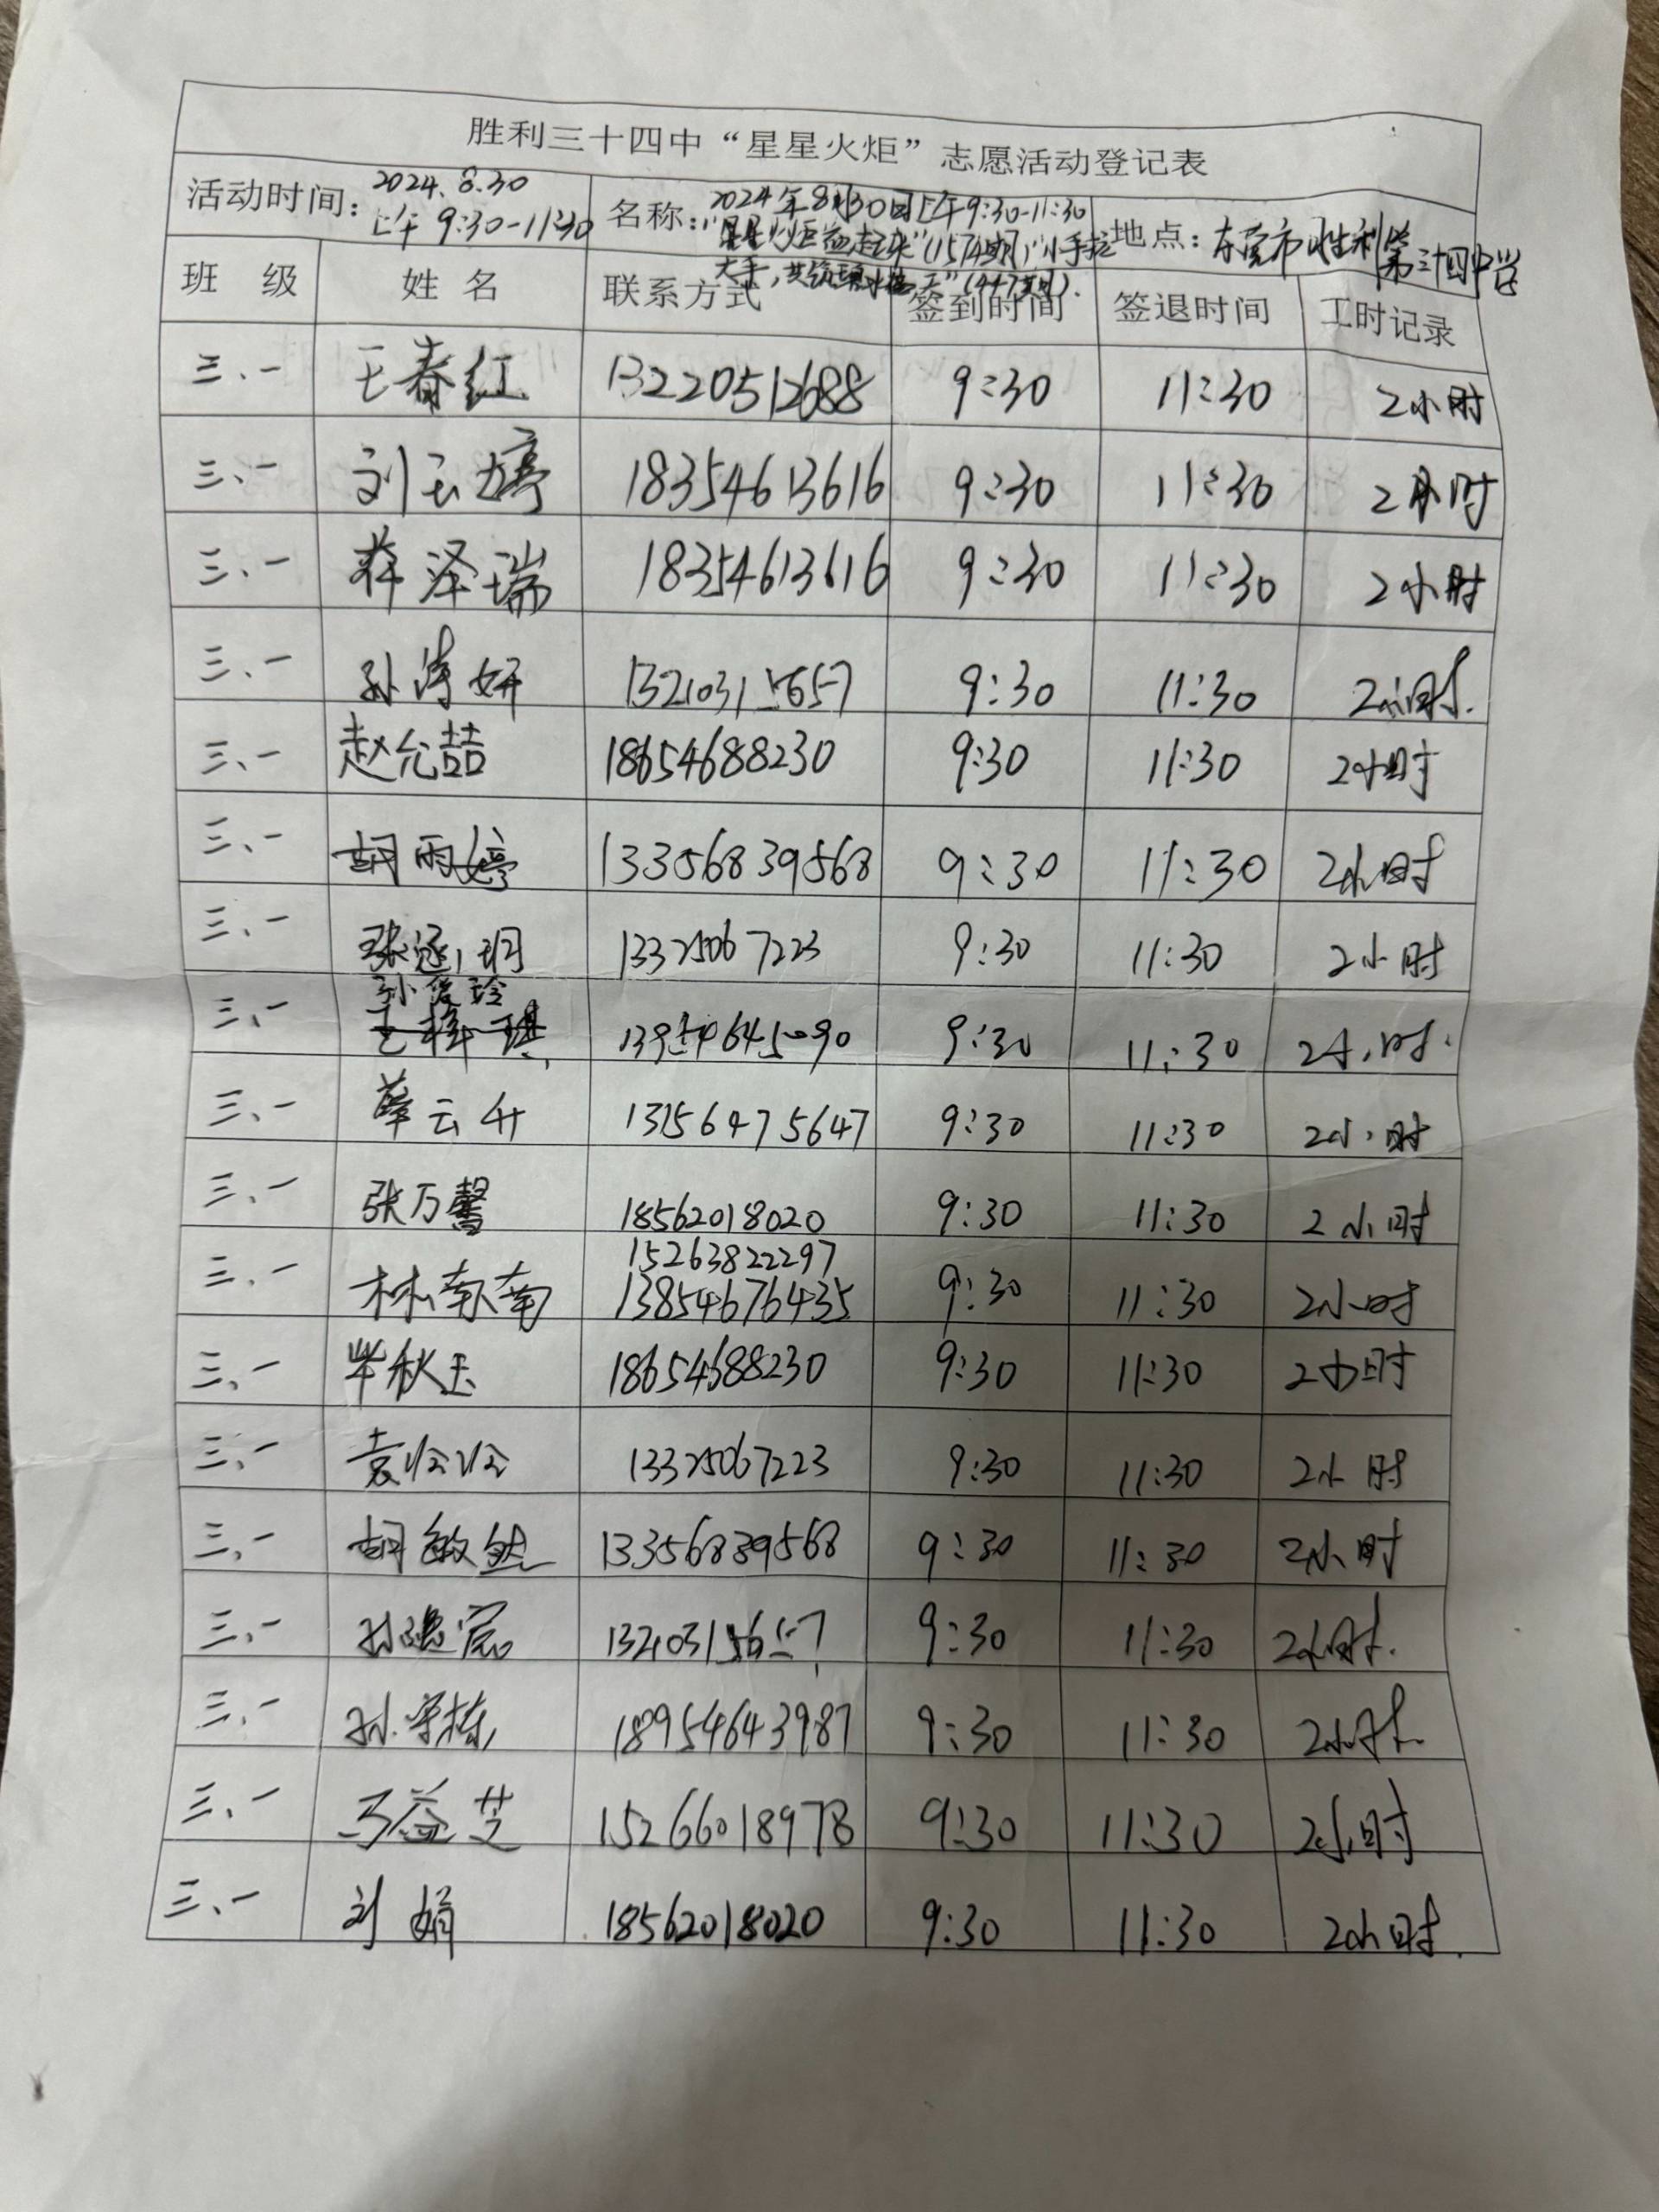 胜利三十四中“星星火炬”志愿活动登记表
活动时间：2024.8.30 上午 9:30-11:30
名称：2024年8月30日上午9:30-11:30
“星星火炬燃起来”(1574期)“小手拉
大手，共筑碧水蓝天”(447期).
地点：东营市胜利第三十四中学
班 级 姓 名 联系方式 签到时间 签退时间 工时记录
三、一 王春红 13220512688 9:30 11:30 2小时
三、一 刘玉婷 18354613616 9:30 11:30 2小时
三、一 蒋泽瑞 18354613616 9:30 11:30 2小时
三、一 孙涛妍 13210315657 9:30 11:30 2小时.
三、一 赵允喆 18654688230 9:30 11:30 2小时
三、一 胡雨婷 13356839568 9:30 11:30 2小时
三、一 张 13325067223 9:30 11:30 2小时
三、一 孙 玲 13954645090 9:30 11:30 2小时.
三、一 薛云升 13156475647 9:30 11:30 2小时
三、一 张万馨 18562018020 9:30 11:30 2小时
15263822297
三、一 林南南 13854676435 9:30 11:30 2小时
三、一 毕秋玉 18654688230 9:30 11:30 2小时
三、一 袁玲玲 13325067223 9:30 11:30 2小时
三、一 胡敏然 13356839568 9:30 11:30 2小时
三、一 孙 宸 13210315657 9:30 11:30 2小时.
三、一 孙学栋 18954643987 9:30 11:30 2小时.
三、一 马益芝 15266018978 9:30 11:30 2小时
三、一 刘娟 18562018020 9:30 11:30 2小时.